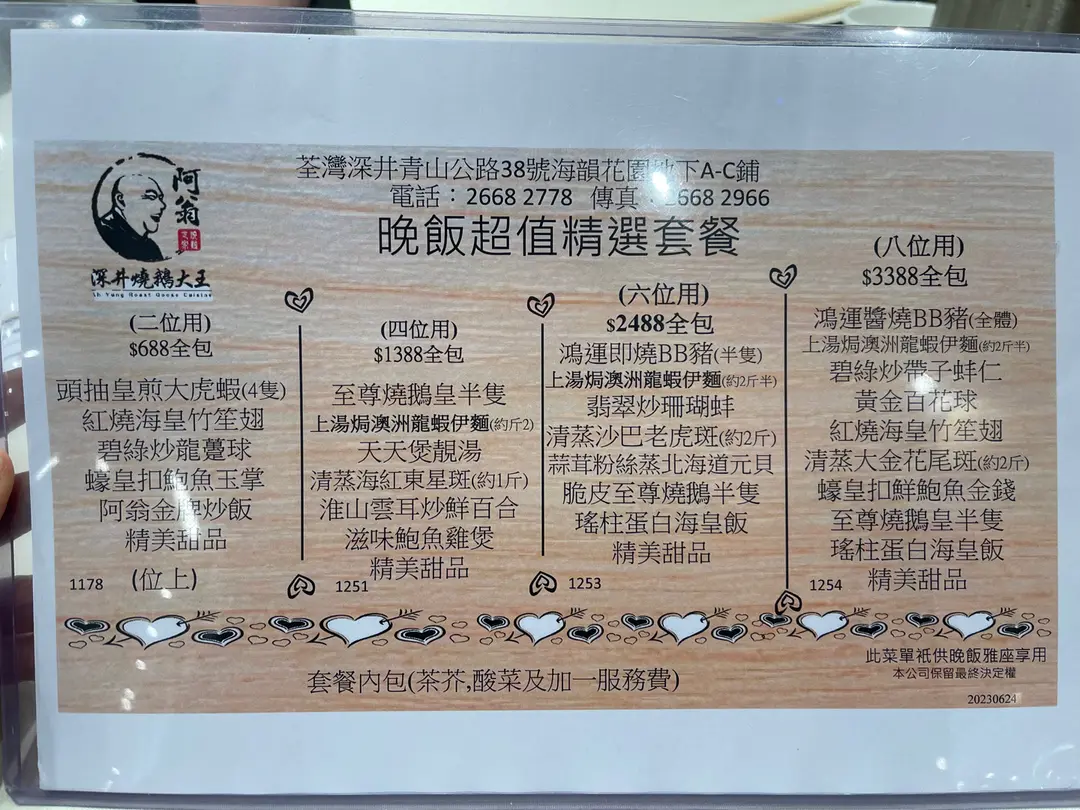 阿翁
深井燒鵝大王
Ah Yung Roast Goose Cuisine
荃灣深井青山公路38號海韻花園地下A-C鋪
電話：2668 2778 傳真：2668 2966
晚飯超值精選套餐
(二位用)
$688全包
頭抽皇煎大虎蝦(4隻)
紅燒海皇竹笙翅
碧綠炒龍躉球
蠔皇扣鮑魚玉掌
阿翁金牌炒飯
精美甜品
(位上)
1178
(四位用)
$1388全包
至尊燒鵝皇半隻
上湯焗澳洲龍蝦伊麵(約斤2)
天天煲靚湯
清蒸海紅東星斑(約1斤)
淮山雲耳炒鮮百合
滋味鮑魚雞煲
精美甜品
1251
(六位用)
$2488全包
鴻運即燒BB豬(半隻)
上湯焗澳洲龍蝦伊麵(約2斤半)
翡翠炒珊瑚蚌
清蒸沙巴老虎斑(約2斤)
蒜茸粉絲蒸北海道元貝
脆皮至尊燒鵝半隻
瑤柱蛋白海皇飯
精美甜品
1253
(八位用)
$3388全包
鴻運醬燒BB豬(全體)
上湯焗澳洲龍蝦伊麵(約2斤半)
碧綠炒帶子蚌仁
黃金百花球
紅燒海皇竹笙翅
清蒸大金花尾斑(約2斤)
蠔皇扣鮮鮑魚金錢
至尊燒鵝皇半隻
瑤柱蛋白海皇飯
精美甜品
1254
套餐內包(茶芥,酸菜及加一服務費)
此菜單衹供晚飯雅座享用
本公司保留最終決定權
20230624